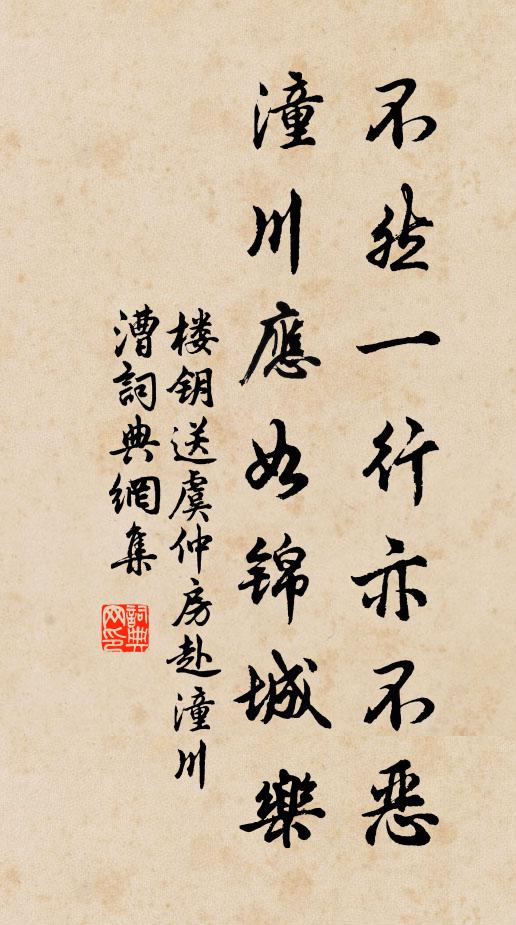 不然一行亦不恶
潼川應如錦城樂
楼钥送虞仲房赴潼川
漕詞典網集
詞典网印